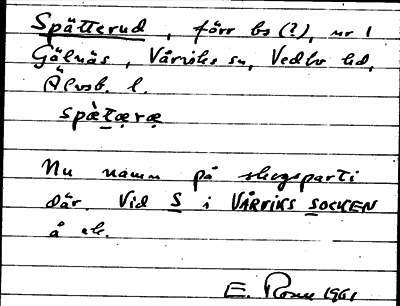 Spätterud, förr bs (?), nr 1
Gälnäs, Vårviks sn, Vedbo hd,
Älvsb. l.
spæ̀tæræ
Nu namn på skogsparti
där. Vid S i VÅRVIKS SOCKEN
å ek.
E. Rosen 1961